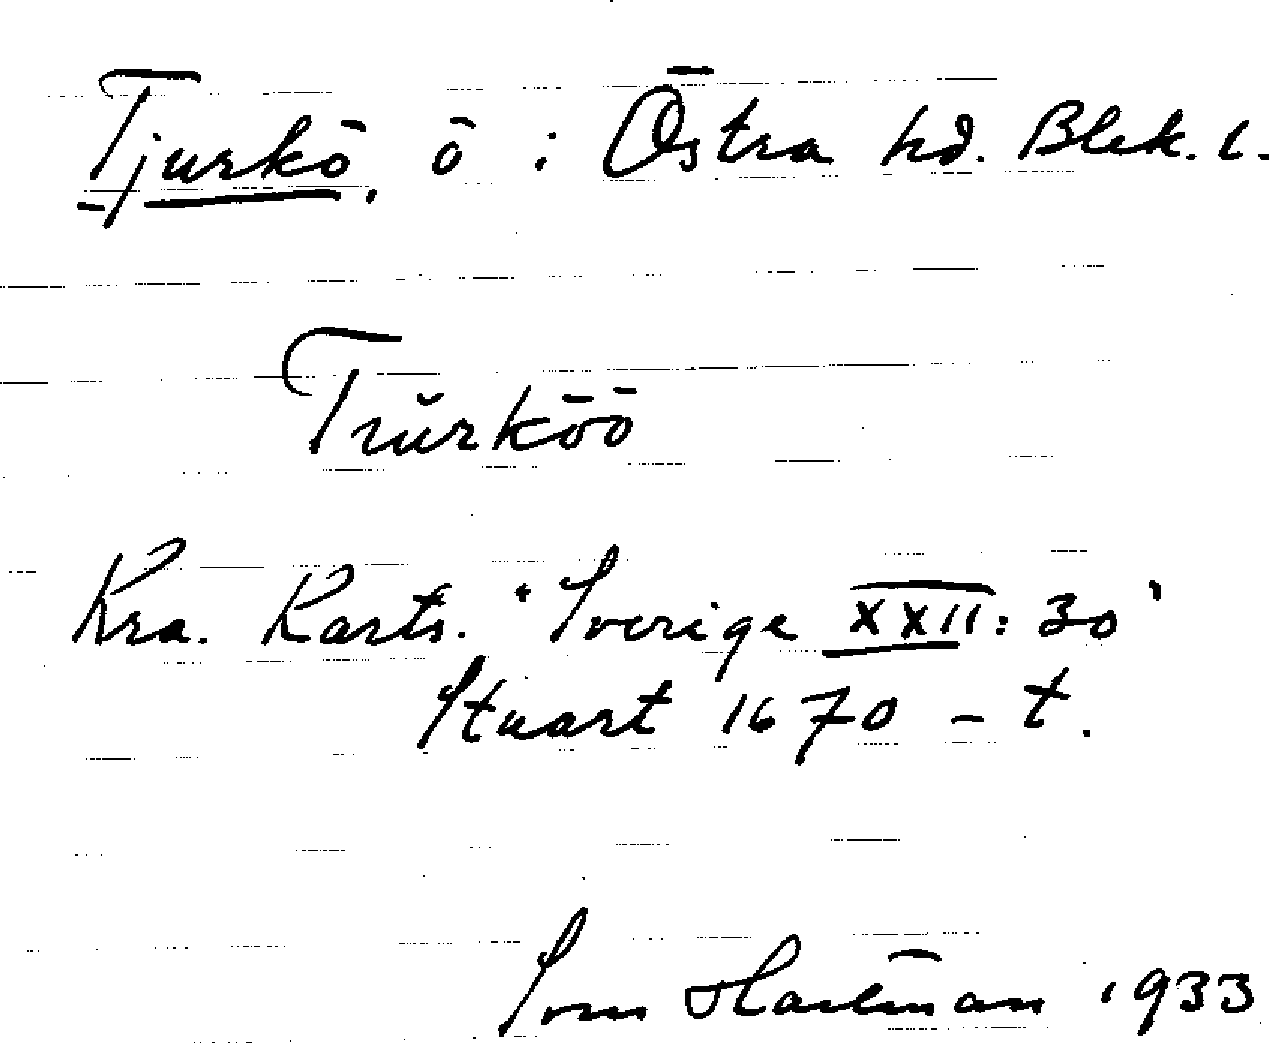 Tjurkö, ö i Östra hd. Blek. l.
Tiŭrköö
Kra. Karts. "Sverige XXII: 30"
Stuart 1670 - t.
Sven Hartman 1933